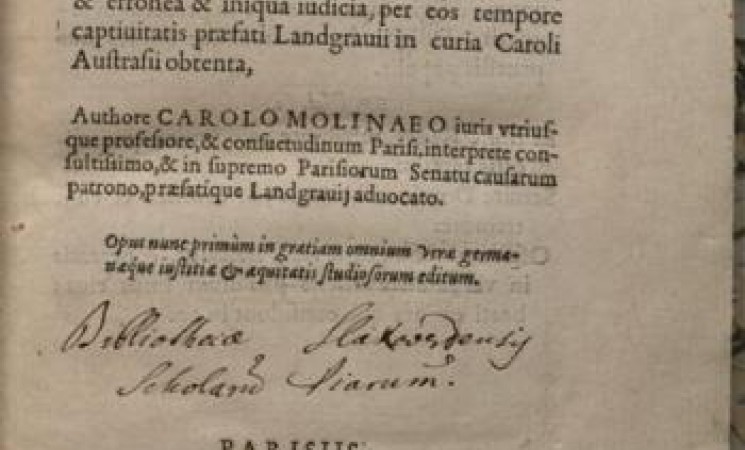 & erronea & iniqua iudicia, per eos tempore
captiuitatis præfati Landgrauii in curia Caroli
Austrasii obtenta,
Authore CAROLO MOLINAEO iuris vtriuſ-
que profeſſore, & conſuetudinum Pariſi. interprete con-
ſultiſſimo, & in ſupremo Pariſiorum Senatu cauſarum
patrono, præfatique Landgrauij aduocato.
Opus nunc primùm in gratiam omnium veræ germa-
næque iuſtitiæ & æquitatis ſtudioſorum editum.
Bibliothecæ Slakwerdensis
Scholarū Piarum.
PARISIIS